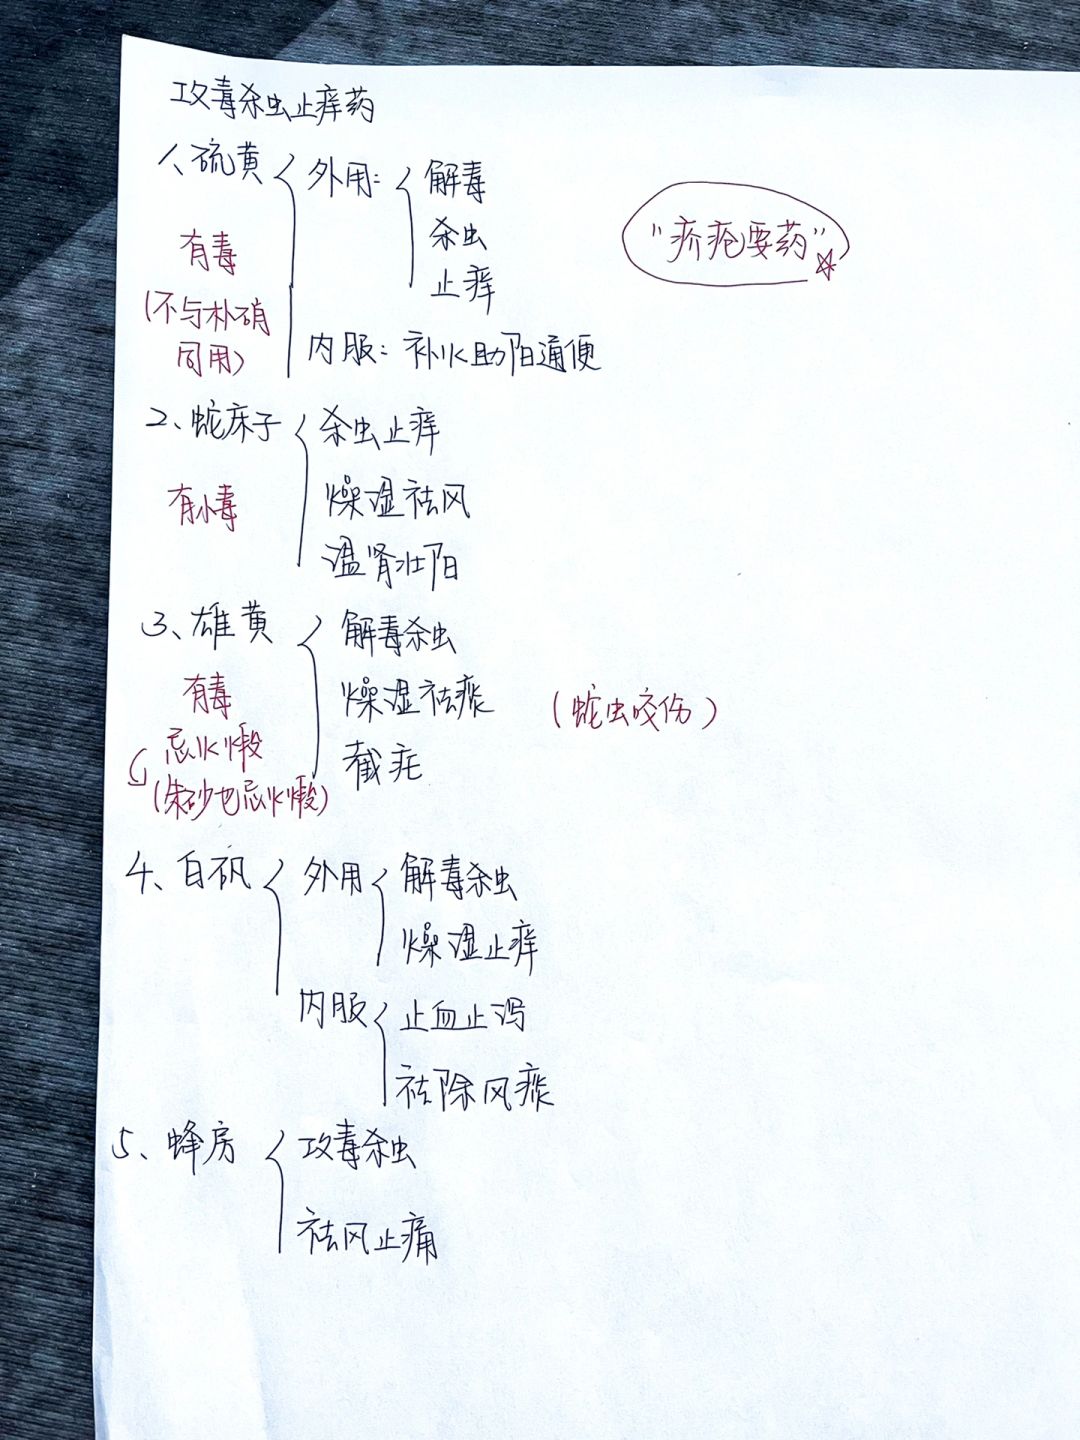 攻毒杀虫止痒药
1、硫黄 外用: 解毒
杀虫
止痒
"疥疮要药"☆
有毒
(不与朴硝
同用)
内服: 补火助阳通便
2、蛇床子 杀虫止痒
有小毒
燥湿祛风
温肾壮阳
3、雄黄 解毒杀虫
有毒
燥湿祛痰 (蛇虫咬伤)
忌火煅
截疟
(朱砂也忌火煅)
4、白矾 外用 解毒杀虫
燥湿止痒
内服 止血止泻
祛除风痰
5、蜂房 攻毒杀虫
祛风止痛